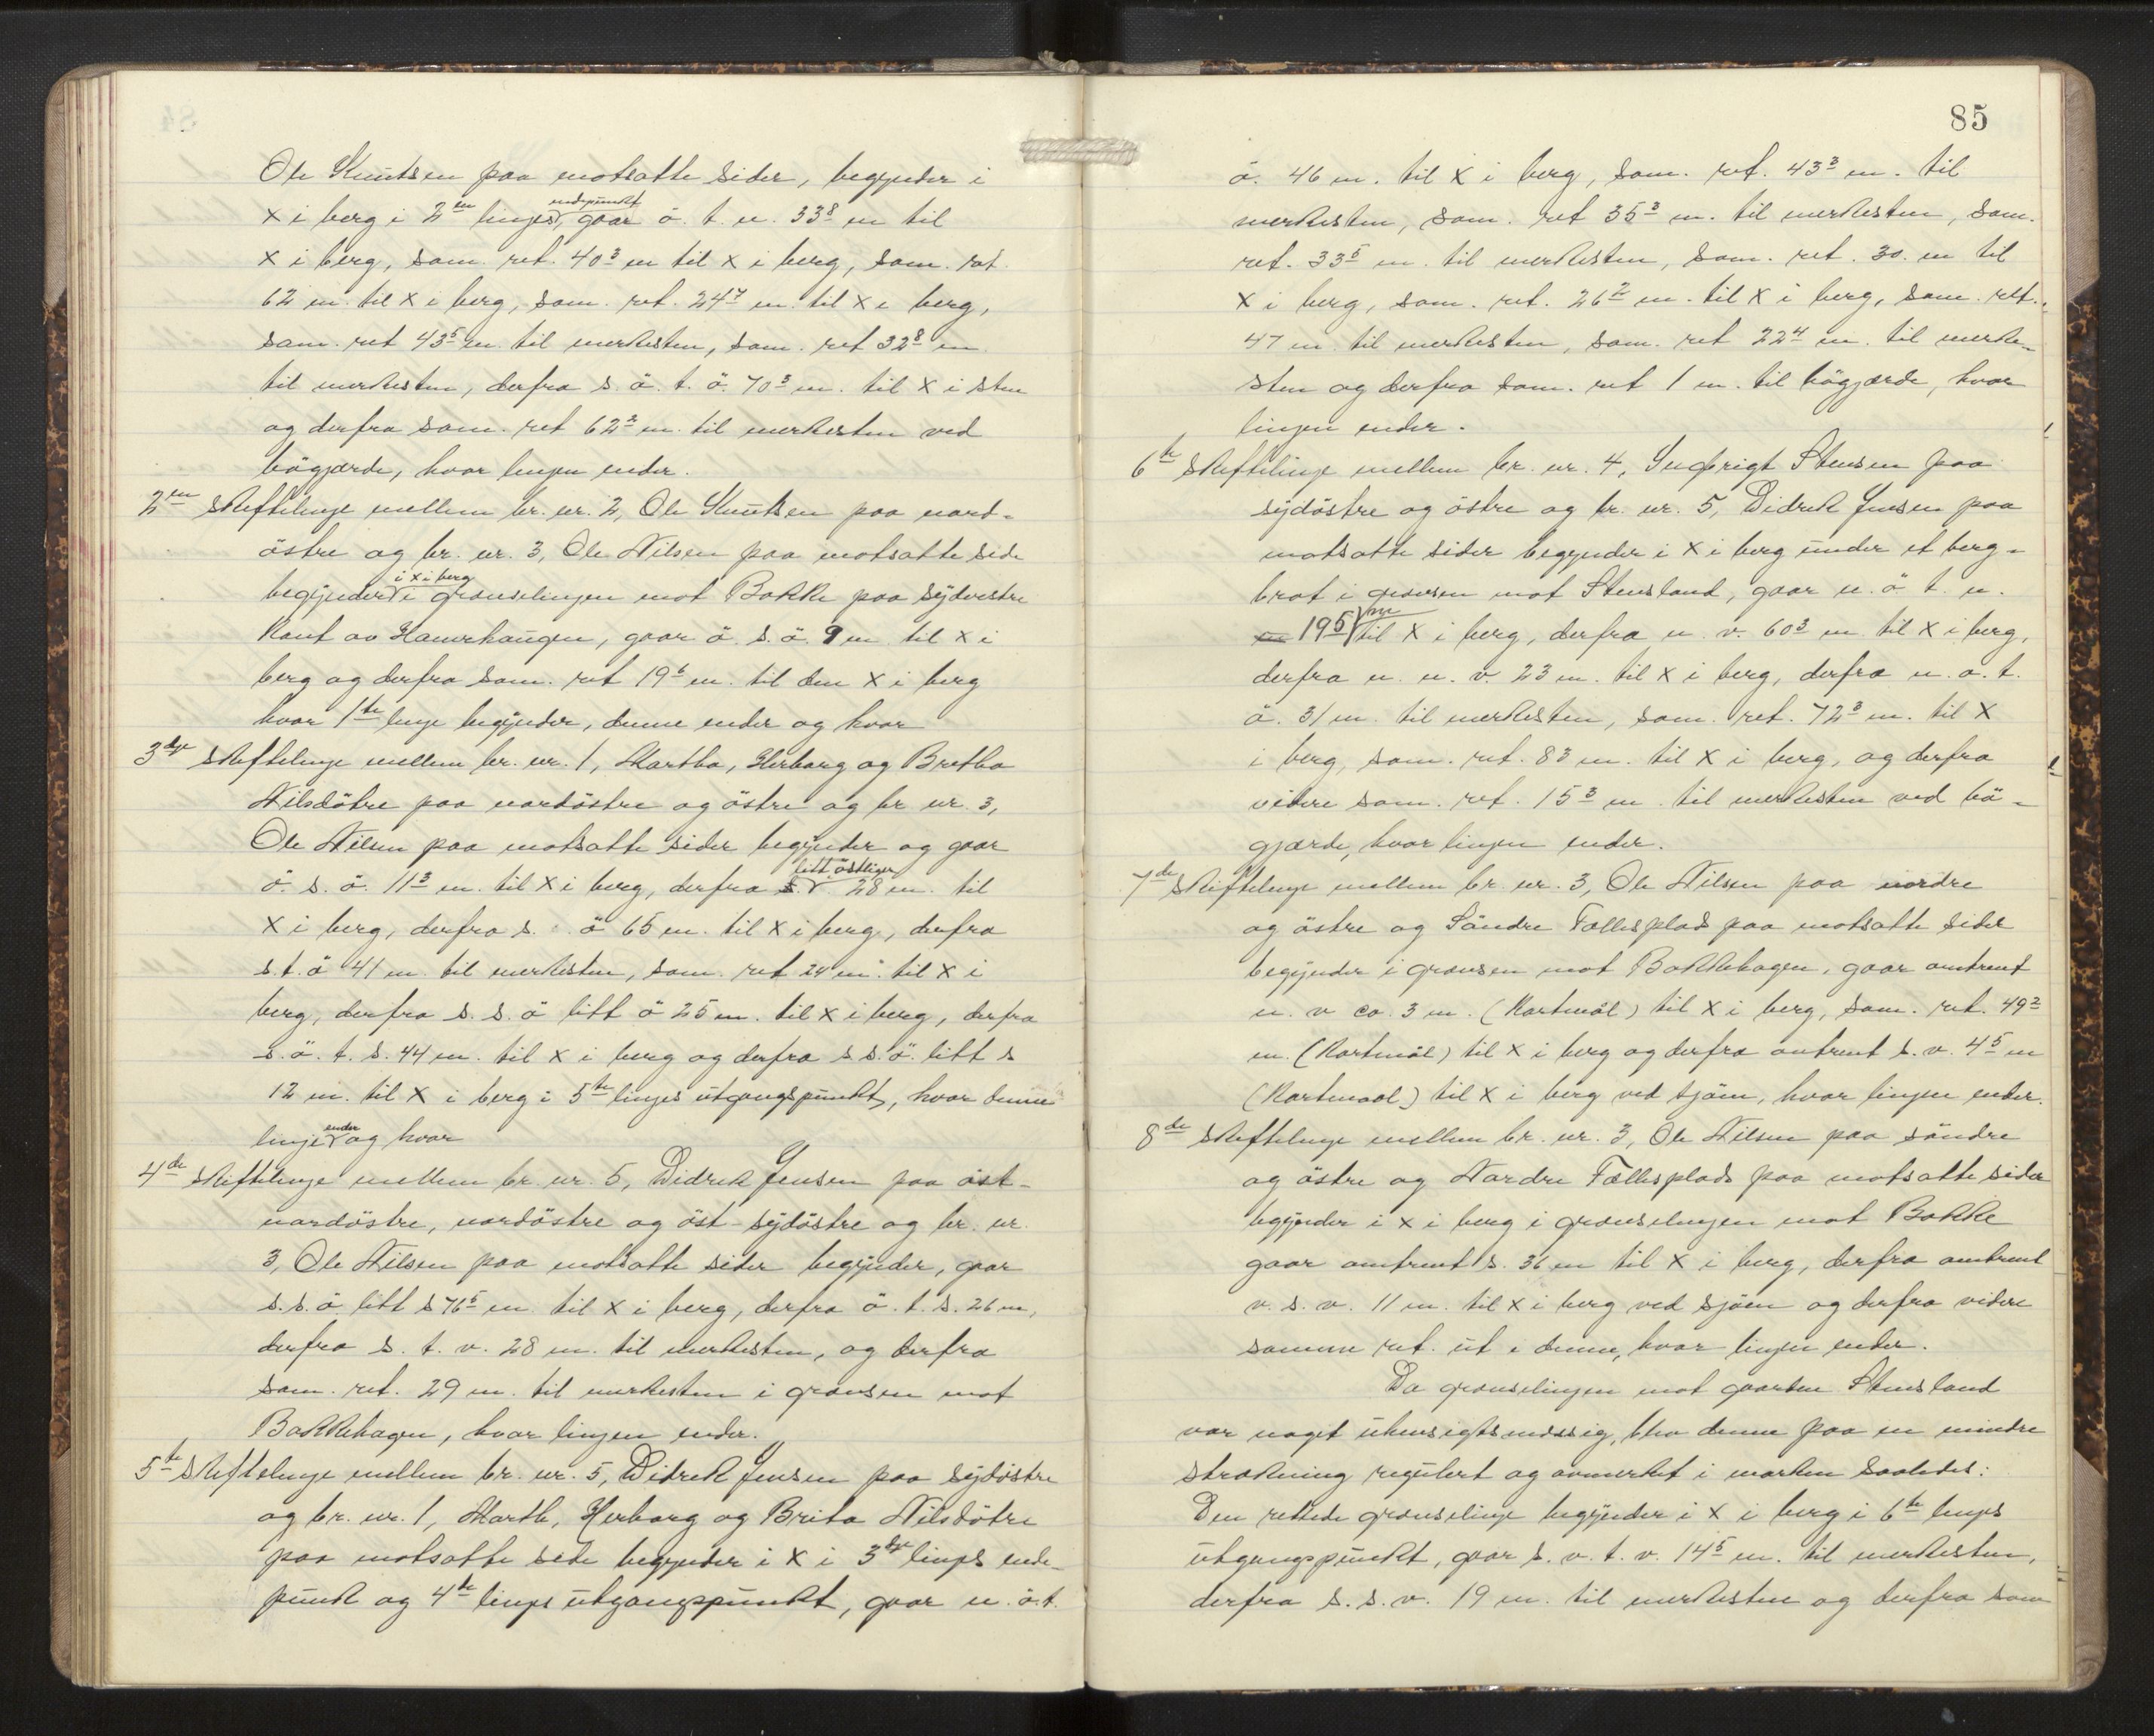 Ole Knutsen paa motsatte sider, begynder i
x i berg i 2en linjes endepunkt gaar ö. t. n. 33⁸ m til
x i berg, sam. ret. 40³ m til x i berg, sam. ret.
62 m. til x i berg, sam. ret. 24⁷ m. til x i berg,
sam. ret 43⁵ m. til merkesten, sam. ret 32⁸ m
til merkesten, derfra s. ö. t. ö. 70³ m. til x i sten
og derfra sam. ret 62² m. til merkesten ved
bögjærde, hvor linjen ender.
2en Skiftelinje mellem br. nr. 2, Ole Knutsen paa nord-
östre og br. nr. 3, Ole Nilsen paa motsatte side
begynder i x i berg i grænselinjen mot Bakke paa sydvestre
kant av Hamrehaugen, gaar ö. s. ö. 9 m til x i
berg og derfra sam. ret 19⁶ m. til den x i berg
hvor 1te linje begynder, denne ender og hvor
3dje Skiftelinje mellem br. nr. 1, Martha, Herborg og Bretha
Nilsdötre paa nordöstre og östre og br nr. 3,
Ole Nilsen paa motsatte sider begynder og gaar
ö. s. ö. 11³ m. til x i berg, derfra s. litt östliger 28 m. til
x i berg, derfra s. ö 65 m. til x i berg, derfra
s. t. ö 41 m. til merkesten, sam. ret 24 m. til x i
berg, derfra s. s. ö litt ö 25 m. til x i berg, derfra
s. ö. t. s. 44 m. til x i berg og derfra s s. ö. litt s
12 m. til x i berg i 5te linjes utgangspunkt, hvor denne
linje ender og hvor
4de Skiftelinje mellem br. nr. 5, Didrek Jensen paa öst-
nordöstre, nordöstre og öst-sydöstre og br. nr.
3, Ole Nilsen paa motsatte sider begynder, gaar
s. s. ö litt s 76⁵ m. til x i berg, derfra ö. t. s. 26 m,
derfra s. t. v. 28 m. til merkesten, og derfra
sam. ret. 29 m. til merkesten i grænsen mot
Bakkehagen, hvor linjen ender.
5te Skiftelinje mellem br. nr. 5, Didrek Jensen paa sydöstre
og br. nr. 1, Marth, Herborg og Brita Nilsdötre
paa motsatte side begynder i x i 3dje linjes ende-
punk og 4de linjes utgangspunkt, gaar n. ö. t.
85
ö. 46 m. til x i berg, sam. ret. 43³ m. til
merkesten, sam. ret 35³ m. til merkesten, sam.
ret. 33⁵ m. til merkesten, sam. ret. 30. m til
x i berg, sam. ret. 26² m. til x i berg, sam. ret.
47 m. til merkesten, sam. ret 22⁴ m. til merke-
sten og derfra sam. ret 1 m. til bögjærde, hvor
linjen ender.
6te Skiftelinje mellem br. nr. 4, Ingbrigt Stensen paa
sydöstre og östre og br. nr. 5, Didrek Jensen paa
motsatte sider begynder i x i berg under et berg-
brot i grænsen mot Stensland, gaar n. ö t. n.
19⁵ m til x i berg, derfra n. v. 60³ m til x i berg,
derfra n. n. v. 23 m. til x i berg, derfra n. ö. t.
ö. 31 m. til merkesten, sam. ret. 72³ m. til x
i berg, sam. ret. 83 m. til x i berg, og derfra
videre sam. ret. 15³ m. til merkesten ved bö-
gjærde, hvor linjen ender.
7de Skiftelinje mellem br. nr. 3, Ole Nilsen paa nordre
og östre og Söndre Fællesplads paa motsatte sider
begynder i grænsen mot Bakkehagen, gaar omtrent
n. v ca. 3 m. (Kartmål) til x i berg, sam. ret. 49²
m. (Kartmål) til x i berg og derfra omtrent s. v. 4⁵ m
(Kartmaal) til x i berg ved sjöen, hvor linjen ender.
8de Skiftelinje mellem br. nr. 3, Ole Nilsen paa söndre
og östre og Nordre Fællesplads paa motsatte sider
begynder i x i berg i grænselinjen mot Bakke
gaar omtrent s. 36 m til x i berg, derfra omtrent
v. s. v. 11 m. til x i berg ved sjöen og derfra videre
samme ret. ut i denne, hvor linjen ender.
Da grænselinjen mot gaarden Stensland
var noget uhensigtsmæssig, blev denne paa en mindre
strækning regulert og avmerket i marken saaledes:
Den rettede grænselinje begynder i x i berg i 6te linjes
utgangspunkt, gaar s. v. t. v. 14⁵ m. til merkesten,
derfra s. s. v. 19 m. til merkesten og derfra sam